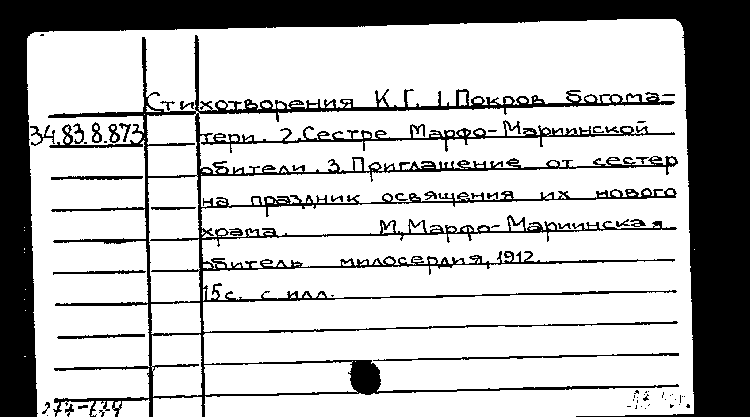 Стихотворения К.Г. 1.Покров богома-
34.83.8.873 тери. 2.Сестре Марфо-Мариинской
обители. 3.Приглашение от сестер
на праздник освящения их нового
храма. М,Марфо-Мариинская
обитель милосердия,1912.
15с. с илл.
277-679